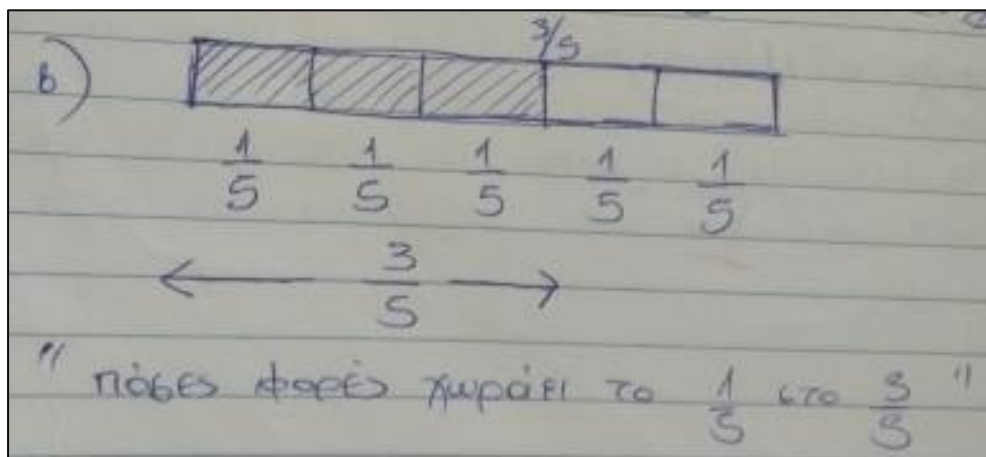 3/5
β)
1/5 1/5 1/5 1/5 1/5
3/5
"πόσες φορές χωράει το 1/5 στο 3/5"